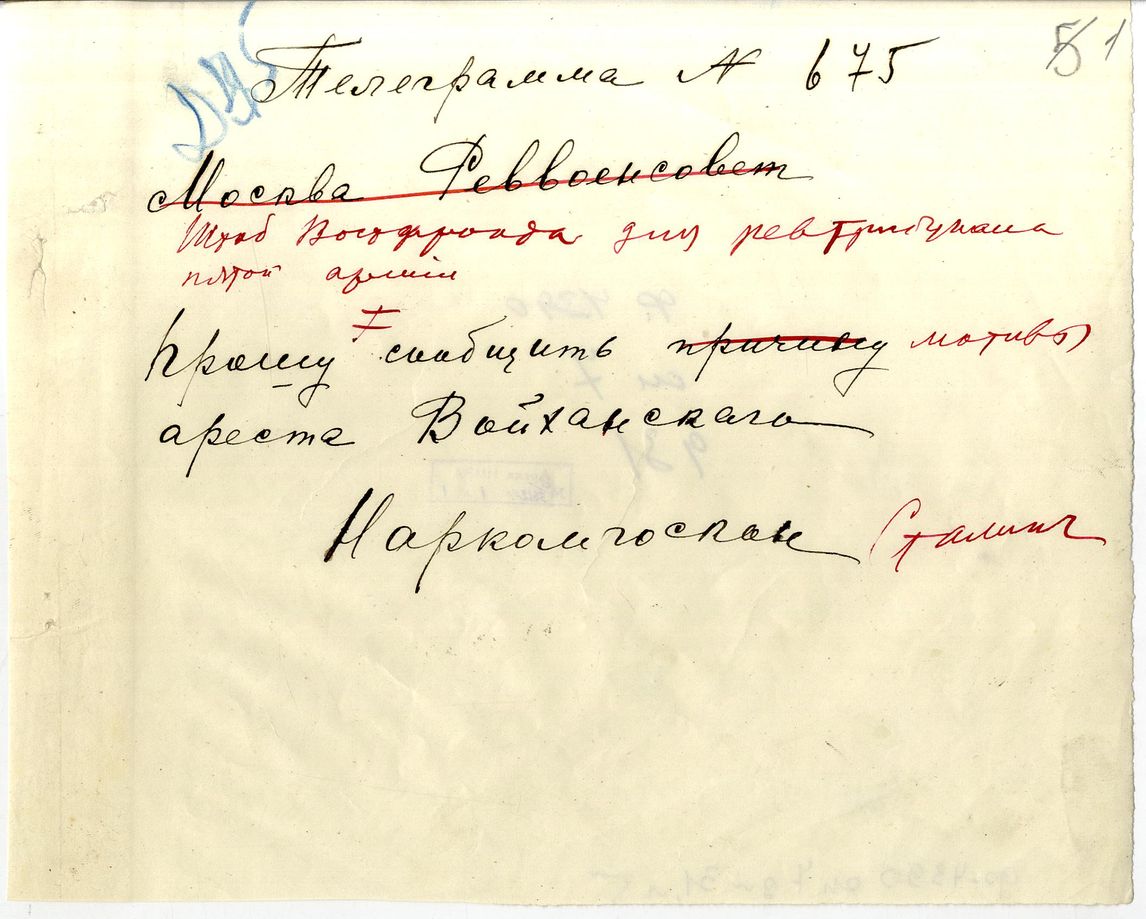 51
Телеграмма N 675
Москва Реввоенсовет
Штаб Востфронта для ревтрибунала
пятой армии
Прошу сообщить причину мотивы
ареста Войханского
Наркомгоскон Сталин